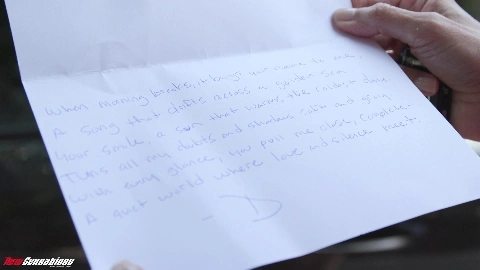 When morning breaks, it hugs your name to me,
A song that drifts across a golden sea.
Your smile, a sun that warms the coldest dawn
Turns all my doubts and shadows into
With every glance, you pull me close, complete.
A quiet world where love and silence meet.
- D